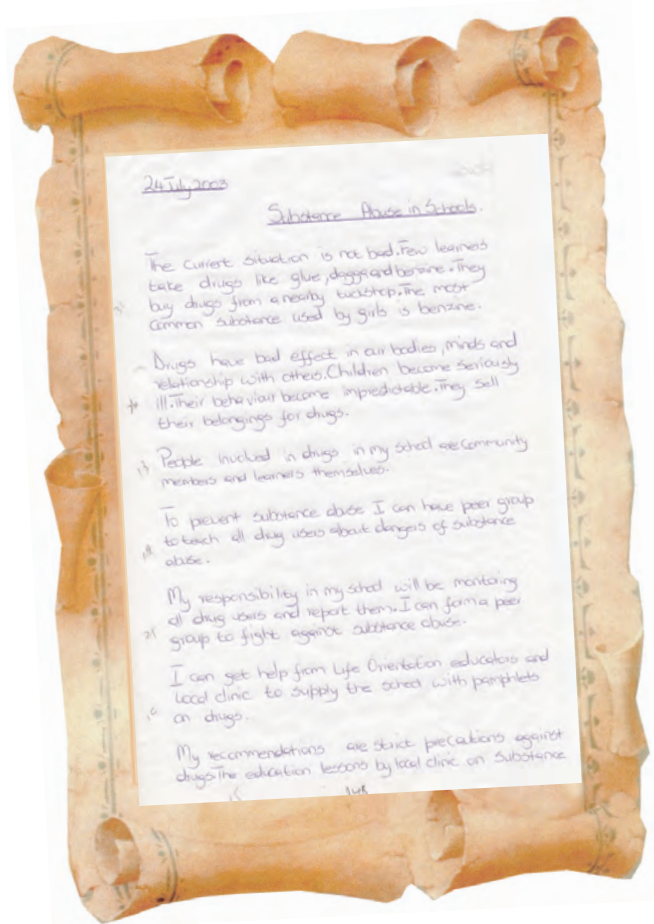 24 July 2003
Substance Abuse in Schools.
The current situation is not bad. Few learners
take drugs like glue, dagga and benzine. They
buy drugs from a nearby tuckshop. The most
common substance used by girls is benzine.
Drugs have bad effect in our bodies, minds and
relationship with others. Children become seriously
ill. Their behaviour become impredictable. They sell
their belongings for drugs.
People involved in drugs in my school are community
members and learners themselves.
To prevent substance abuse I can have peer group
to teach all drug users about dangers of substance
abuse.
My responsibility in my school will be monitoring
all drug users and report them. I can form a peer
group to fight against substance abuse.
I can get help from Life Orientation educators and
Local clinic to supply the school with pamphlets
on drugs.
My recommendations are strict precautions against
drugs. The education lessons by local clinic on substance